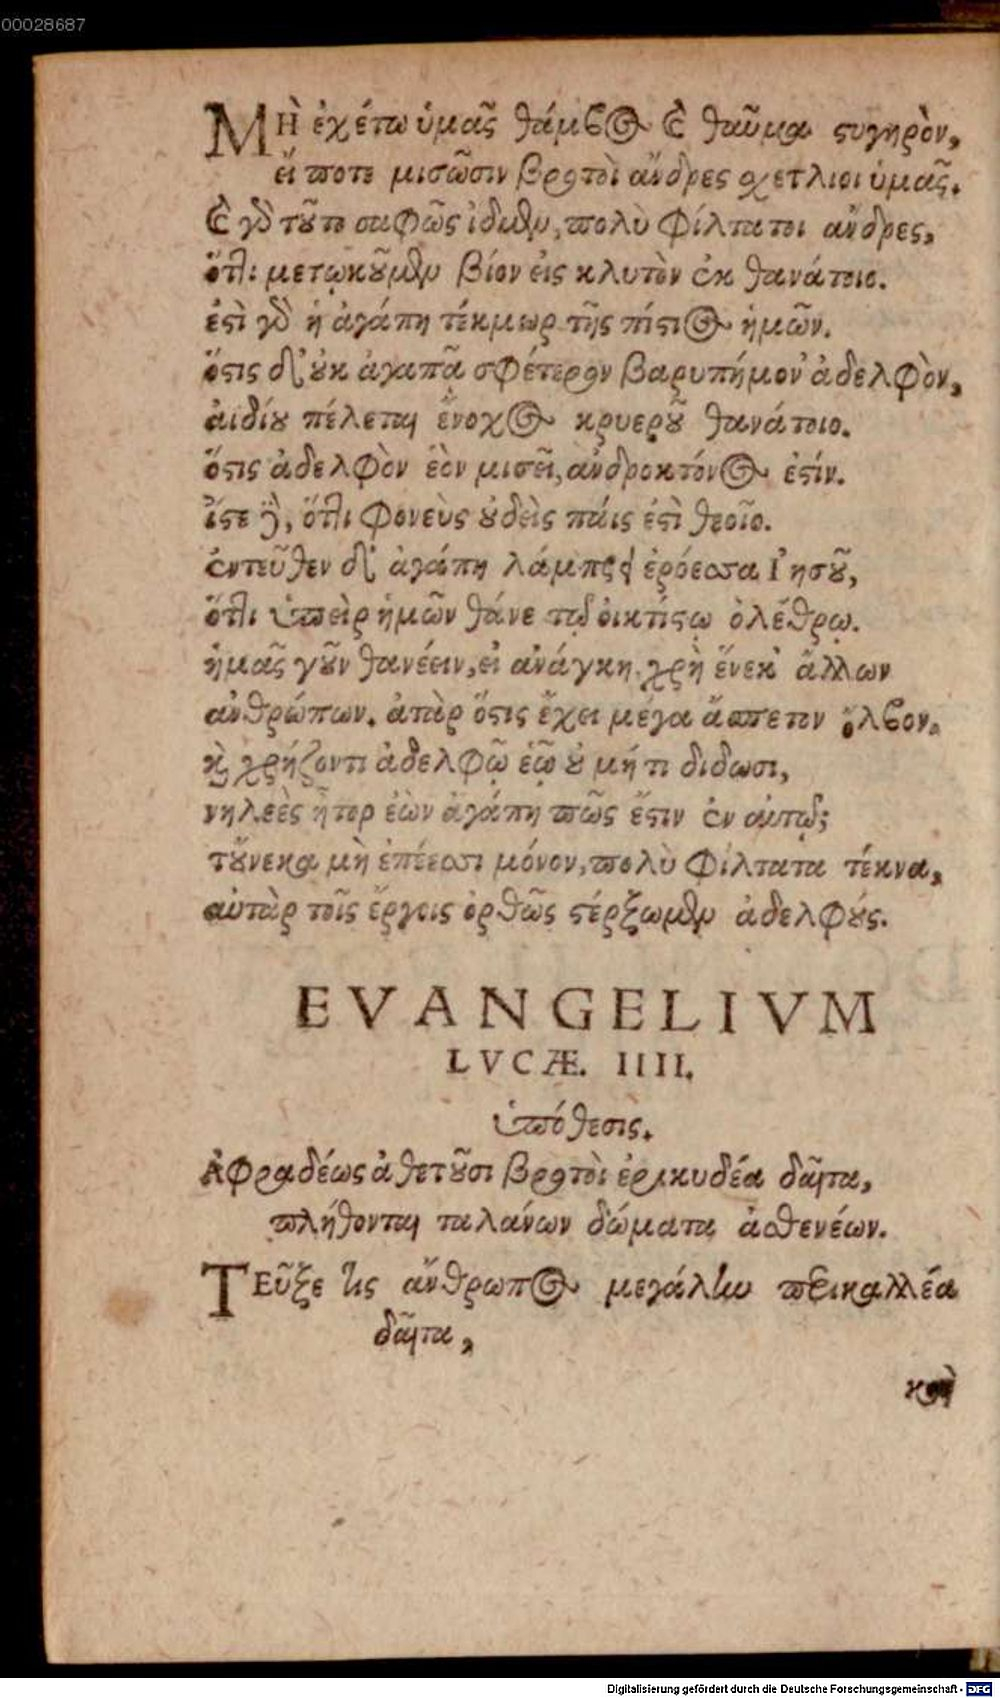 00028687
ΜῊ ἐχέτω ὑμᾶς θάμβος καὶ θαῦμα στυγηρὸν,
εἴ ποτε μισῶσιν βροτοὶ ἄνδρες σχετλιοι ὑμᾶς.
καὶ γὰρ τοῦτο σαφῶς ἴδμεν, πολὺ φίλτατοι ἄνδρες,
ὅτι μετῳκοῦμεν βίον εἰς κλυτὸν ἐκ θανάτοιο.
ἐστὶ γὰρ ἡ ἀγάπη τέκμωρ τῆς πίστιος ἡμῶν.
ὅστις δ' οὐκ ἀγαπᾷ σφέτερον βαρυπήμον' ἀδελφὸν,
ἀιδίου πέλεται ἔνοχος κρυεροῦ θανάτοιο.
ὅστις ἀδελφὸν ἑὸν μισεῖ, ἀνδροκτόνος ἐστίν.
ἴστε δὲ, ὅτι φονεὺς οὐδεὶς πάις ἐστὶ θεοῖο.
ἐντεῦθεν δ' ἀγάπη λάμπει ἐρόεσσα Ἰησοῦ,
ὅτι ὑπεὶρ ἡμῶν θάνε τῷ οἰκτίστῳ ὀλέθρῳ.
ἡμᾶς γοῦν θανέειν, εἰ ἀνάγκη, χρὴ ἕνεκ' ἄλλων
ἀνθρώπων. ἀτὰρ ὅστις ἔχει μέγα ἄσπετον ὄλβον.
καὶ χρήζοντι ἀδελφῷ ἑῷ οὐ μήτι διδωσι,
νηλεὲς ἦτορ ἐὼν ἀγάπη πῶς ἔστιν ἐν αὐτῷ;
τοὔνεκα μὴ ἐπέεσσι μόνον, πολὺ φίλτατα τέκνα,
αὐτὰρ τοῖς ἔργοις ὀρθῶς στέρξωμεν ἀδελφούς.
EVANGELIVM
LVCÆ. IIII.
ὑπόθεσις.
Ἀφραδέως ἀθετοῦσι βροτοὶ ἐρικυδέα δαῖτα,
πλήθονται ταλάνων δώματα ἀσθενέων.
ΤΕῦξε τις ἄνθρωπος μεγάλην περικαλλέα
δαῖτα,
καὶ
Digitalisierung gefördert durch die Deutsche Forschungsgemeinschaft - DFG